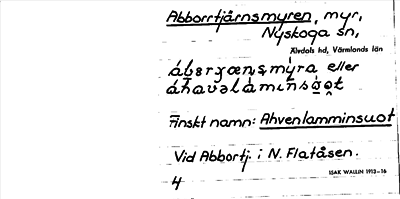 Abborrtjärnsmyren, myr,
Nyskoga sn,
Älvdals hd, Värmlands län
eller
Finskt namn: Ahvenlamminsuot
Vid Abbortj. i N. Flatåsen.
4
ISAK WALLIN 1913-16